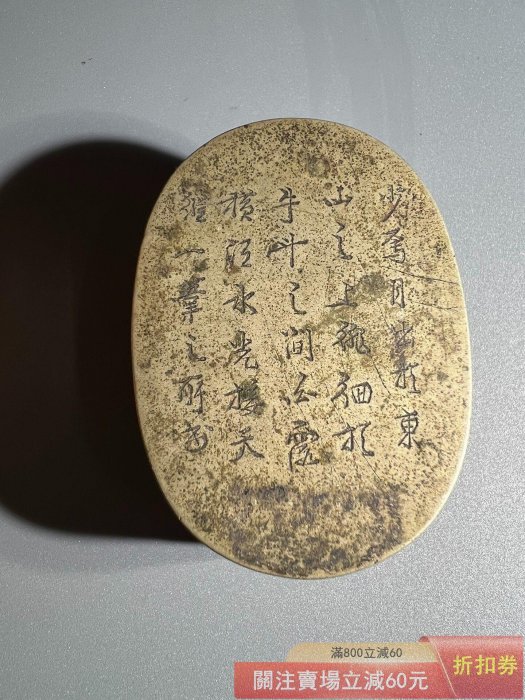 少焉月出於東
山之上徘徊於
牛斗之間白露
橫江水光接天
縱一葦之所如
滿800立減60
關注賣場立減60元
折扣券